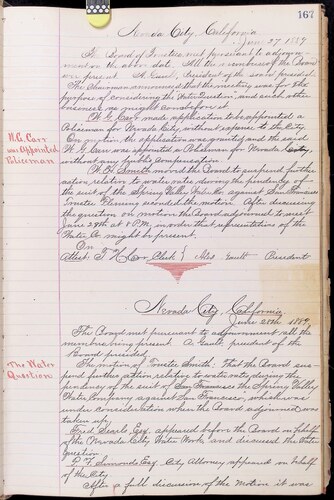 167
Nevada City, California
June 27. 1889
The Board of Trustees met pursuant to adjourn-
ment on the above date. All the members of the Board
were present. A. Gault, President of the Board presided.
The Chairman announced that the meeting was for the
purpose of considering the "Water Question", and such other
business as might come before it.
W. G. Carr made application to be appointed a
Policeman for Nevada City, without expense to the City.
On motion, the application was granted and the said
W. G. Carr was appointed a Policeman for Nevada City,
without any public compensation.
W.G. Carr
was Appointed
Policeman
Smith moved the Board to suspend further
action relative to water rates during the pendency of
the suit of the Spring Valley Water Co. against San Francisco
Trustee Fleming seconded the motion. After discussing
the question, on motion the Board adjourned to meet
June 28th at 8 P.M. in order that representatives of the
Water Co. might be present.
Attest: T. H. Carr, Clerk
Gault President
Nevada City, California
June 28th 1889.
The Board met pursuant to adjournment all the
members being present. A. Gault president of the
Board presided.
The Water
Question
The motion of Trustee Smith: That the Board sus-
pend further action relative to water rates during the
pendency of the suit of San Francisco the Spring Valley
Water Company against San Francisco, which was
under consideration when the Board adjourned was
taken up.
Fred Searls Esq. appeared before the Board on behalf
of the Nevada City Water Works and discussed the Water
Question.
P. F. Simonds Esq. City Attorney appeared on behalf
of the City.
After a full discussion of the motion it was